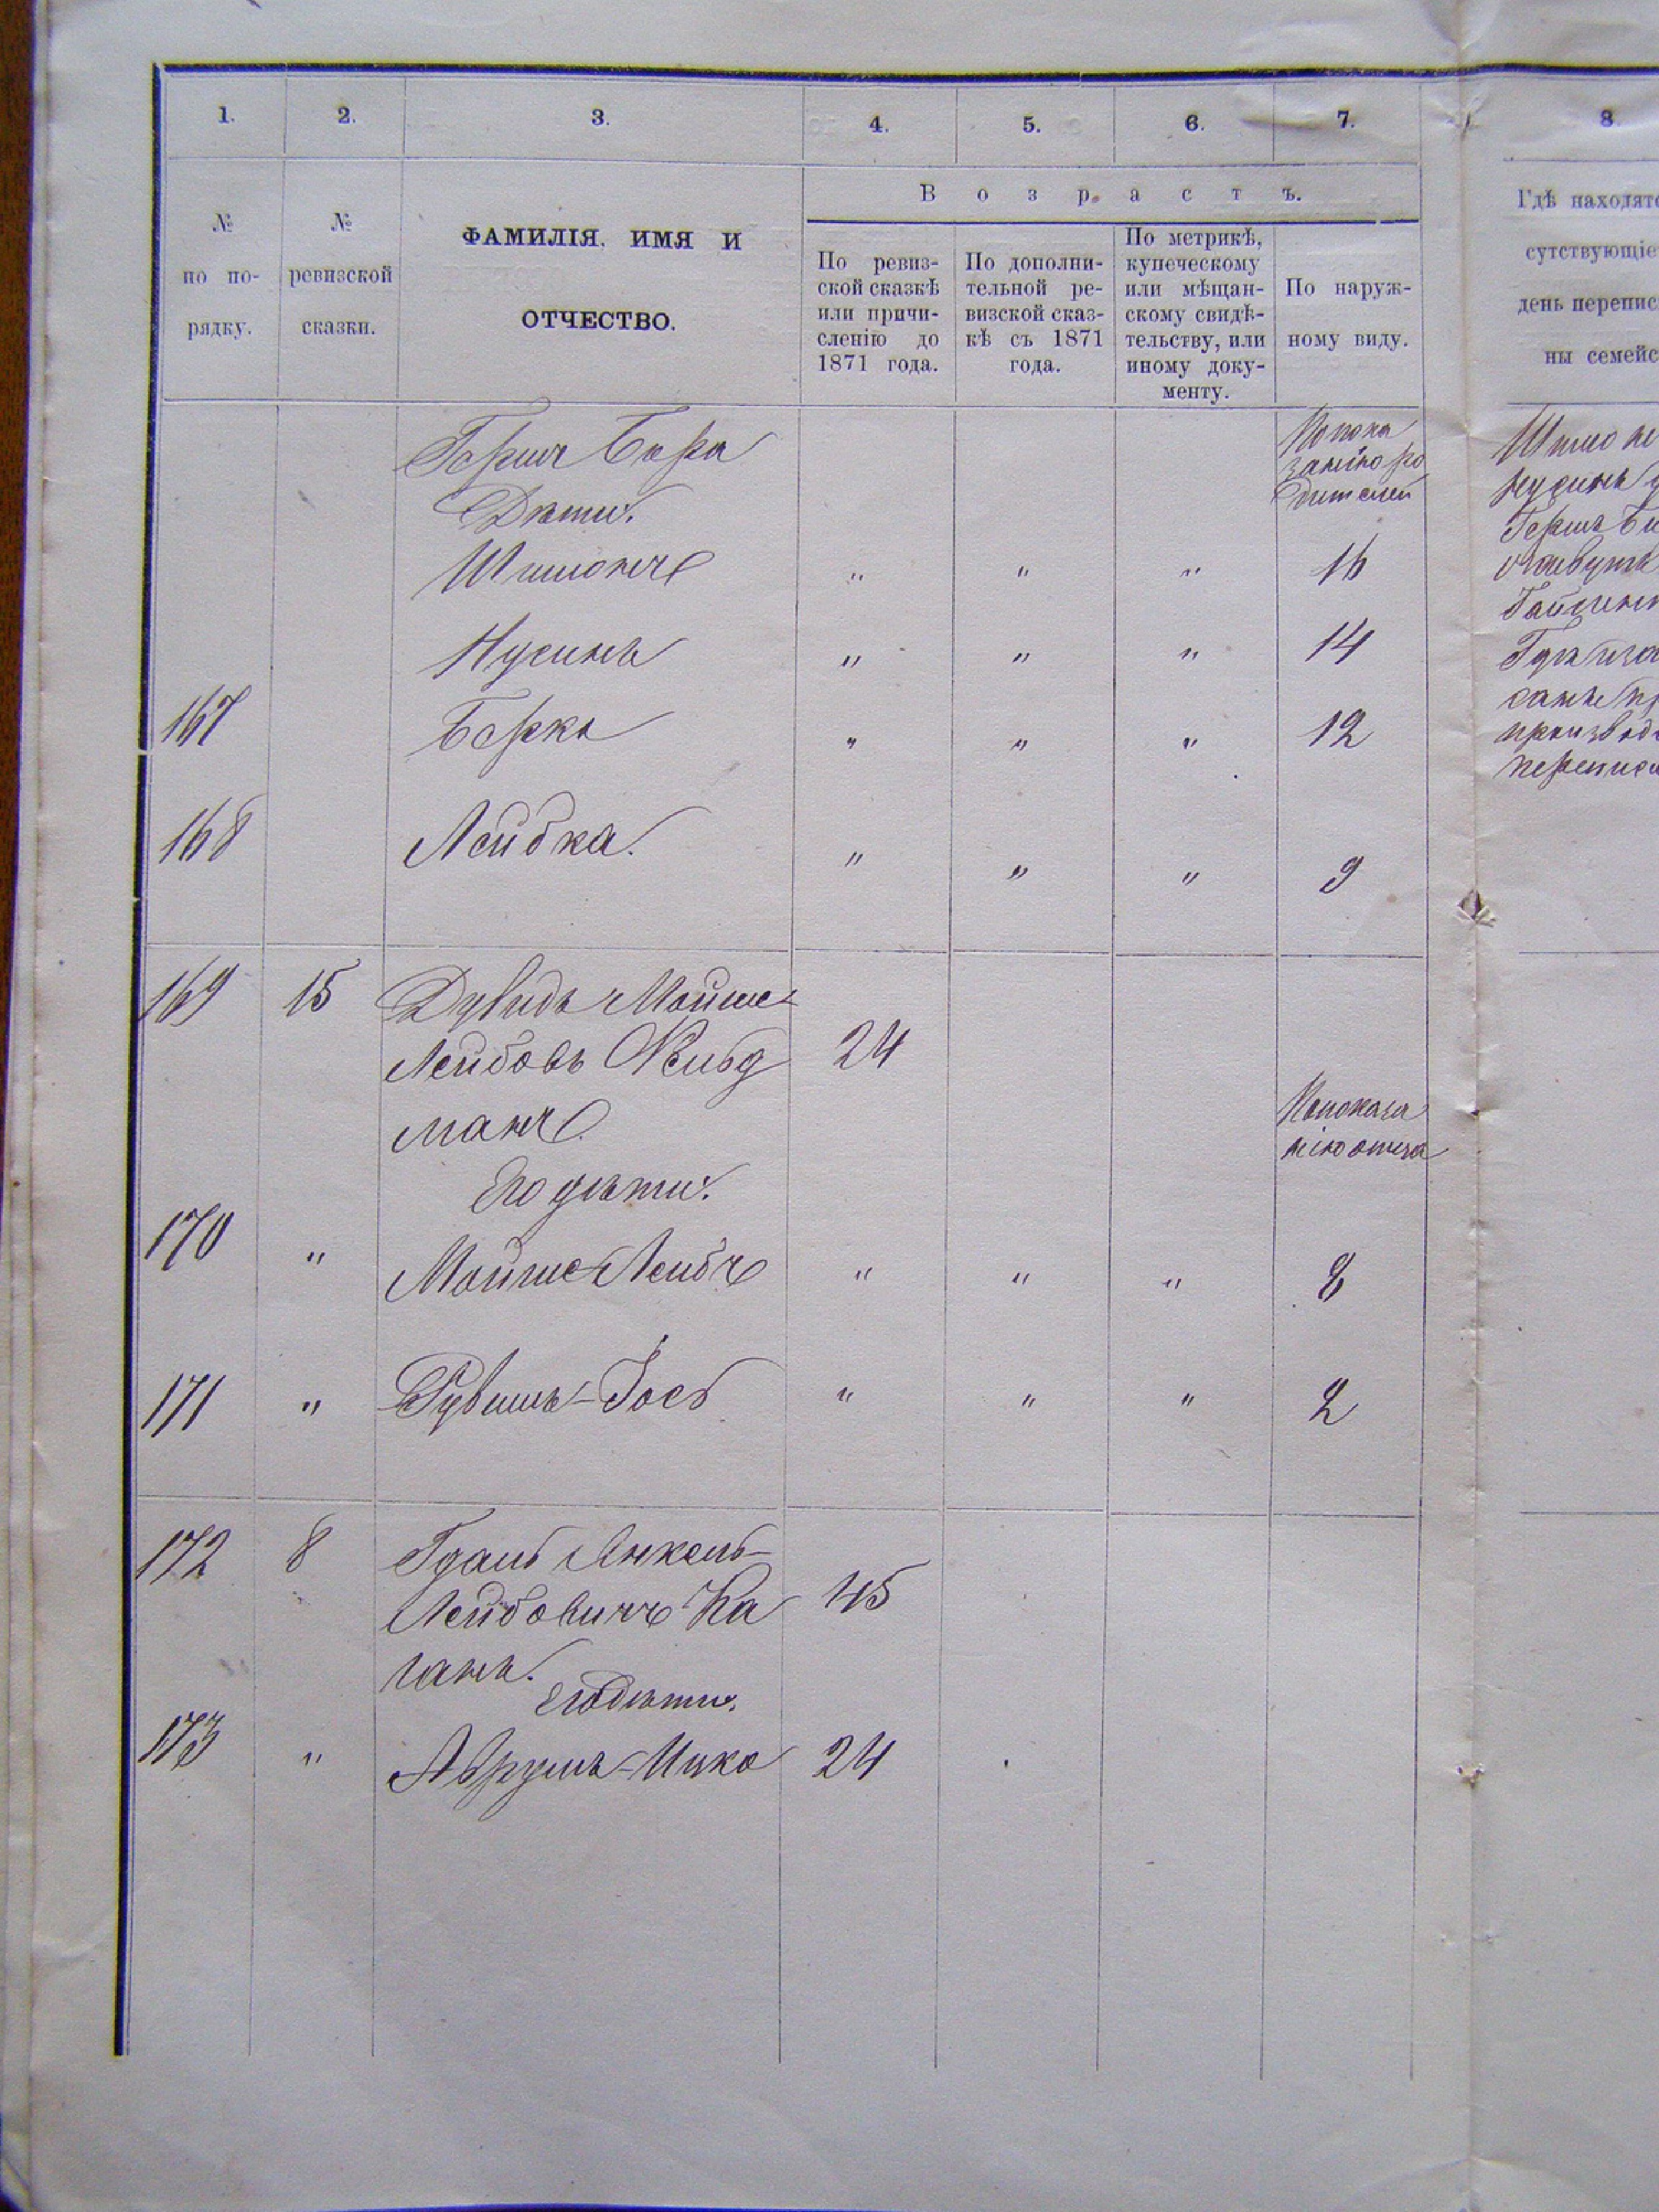 1. 2. 3. 4. 5. 6. 7. 8.
Возрастъ.
№ по по-рядку.
№ ревизской сказки.
ФАМИЛІЯ, ИМЯ И
ОТЧЕСТВО.
По ревиз-
ской сказкѣ
или причи-
сленію до
1871 года.
По дополни-
тельной ре-
визской сказ-
кѣ съ 1871
года.
По метрикѣ,
купеческому
или мѣщан-
скому свидѣ-
тельству, или
иному доку-
менту.
По наруж-
ному виду.
Гдѣ находятс
сутствующіе
день перепис
ны семейс
Герша Бера
По пока
занію ро
дителей
Дѣти.
Шимонъ " " " 16
Нусинъ " " " 14
167 Берко " " " 12
168 Лейбка. " " " 9
Шимо н
Нусинъ
Гершъ Бе
Гайсинс
производ
переписи
169 15 Дувидъ Мойше-
Лейбовъ Фельд 24
манъ
По показа
нію отца
Его дѣти.
170 " Мойше-Лейбъ " " " 8
171 " Рувинъ-Іось " " " 2
172 8 Гдаль Янкель-
Лейбовичъ Ка 45
ганъ.
Его дѣти.
173 " Аврумъ-Ицко 24